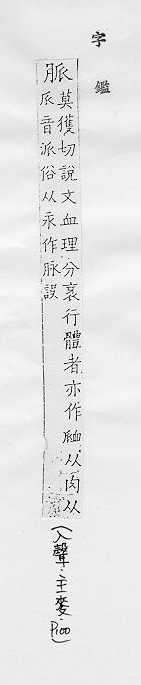 字鑑
脈莫獲切說文血理分衺行體者亦作𧖴从肉从
𠂢音派俗从永作脉誤
(入聲.主麥.P100)